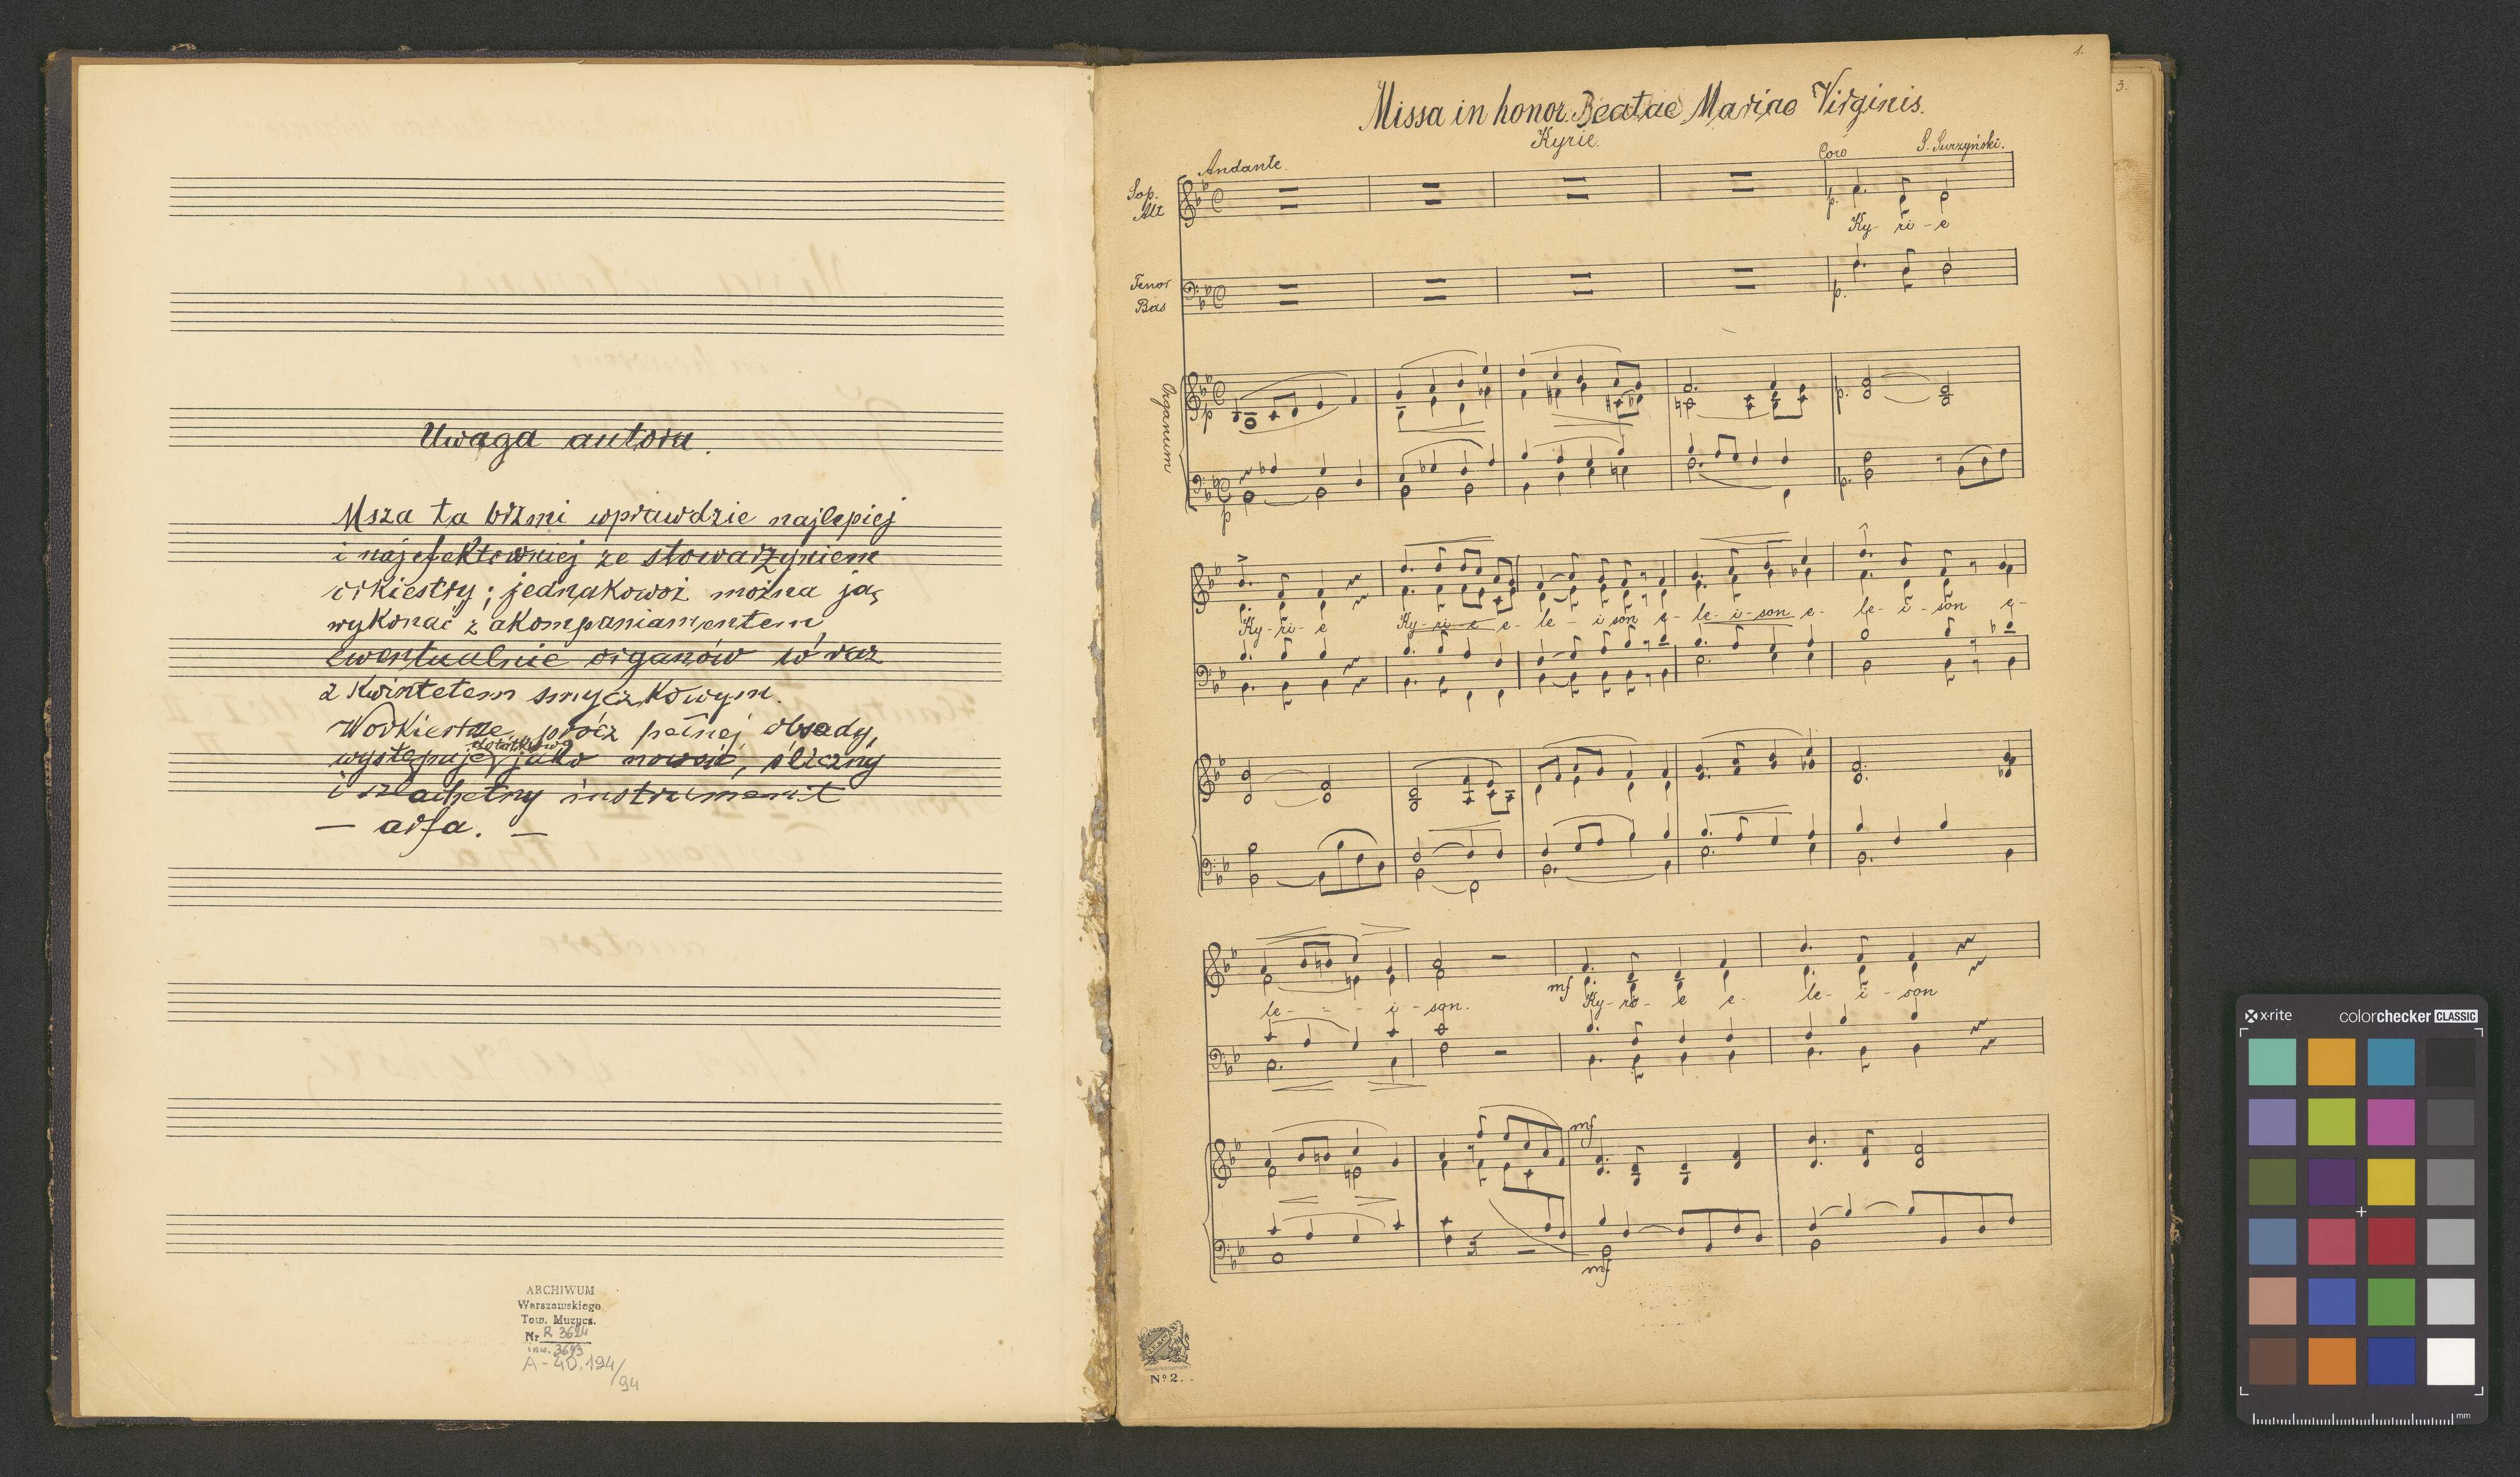 Uwaga autora.
Msza ta brzmi wprawdzie najlepiej
i najefektowniej ze stowarzyniem
orkiestry; jednakowoż można ją
wykonać z akompaniamentem
ewentualnie organów wraz
z kwintetem smyczkowym.
W orkiestrze prócz pełnej obsady,
dodatkowo
występuje jako nowość, śliczny
i szlachetny instrument
— arfa. —
ARCHIWUM
Warszawskiego
Tow. Muzycs.
Nr R 3624
inw. 3693
A-40.194/94
1.
3.
Missa in honor. Beatae Mariae Virginis.
Kyrie.
S. Surzyński.
Andante.
Coro
Sop.
Alt
p.
Ky- ri - e
Tenor
Bas
p.
Organum
p
p.
p
p.
Ky- ri- e Ky- ri- e e- le- i son e- le- i- son e- le- i- son e-
le- - - i - son. mf Ky- ri- e e- le- i - son
mf
mf
Nº 2.
x-rite colorchecker CLASSIC
mm